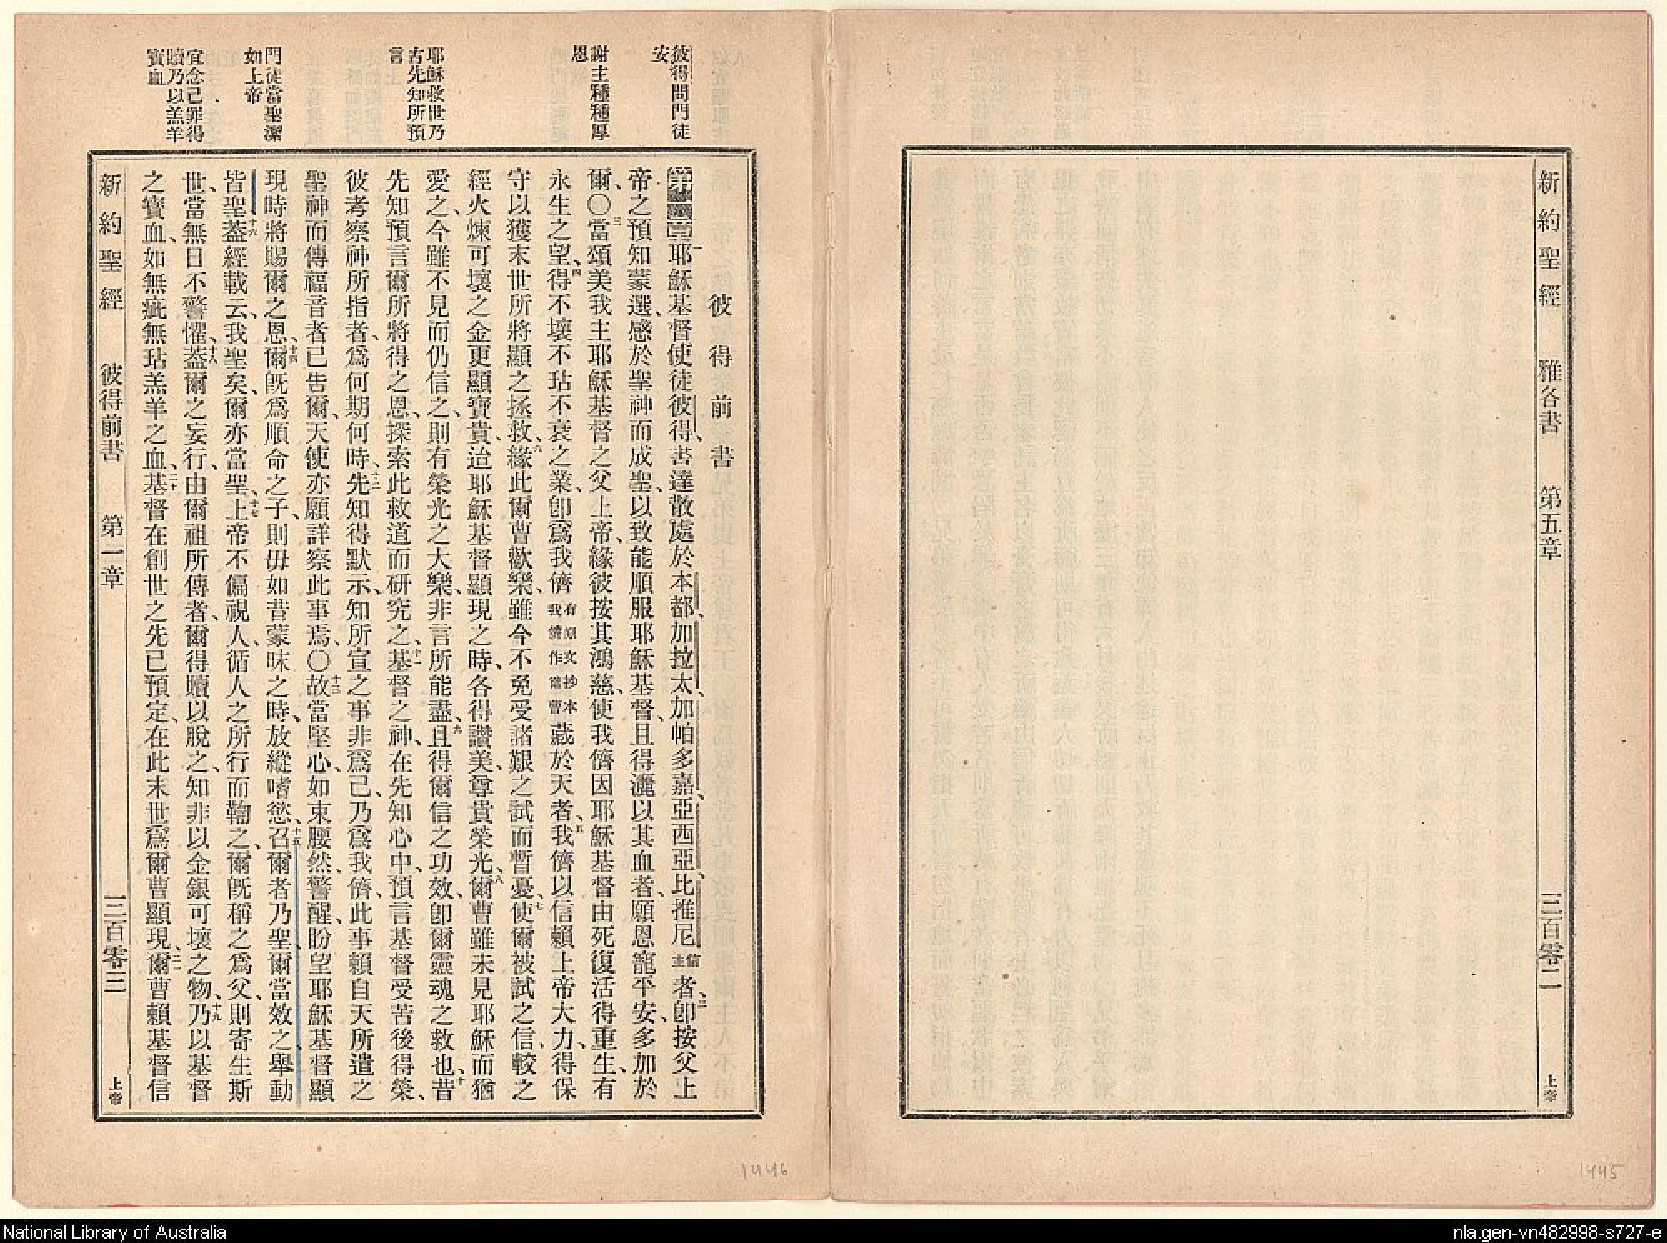 新約聖經 雅各書 第五章 三百零二 上帝
彼得問門徒
安
謝主種種厚
恩
耶穌救世乃
古先知所預
言
門徒當聖潔
如上帝
宜念己罪得
贖乃以羔羊
寶血
彼得前書
第一章 一耶穌基督使徒彼得、書達散處於本都、加拉太、加帕多嘉、亞西亞、比推尼信主者、二卽按父上
帝之預知蒙選、感於聖神而成聖、以致能順服耶穌基督、且得灑以其血者、願恩寵平安、多加於
爾、〇三當頌美我主耶穌基督之父上帝、緣彼按其鴻慈、使我儕因耶穌基督由死復活得重生、有
永生之望、四得不壞不玷不衰之業、卽爲我儕有原文抄本我儕作爾曹藏於天者、五我儕以信賴上帝大力、得保
守以獲末世所將顯之拯救、六緣此爾曹歡樂、雖今不免受諸艱之試而暫憂、七使爾被試之信、較之
經火煉可壞之金更顯寶貴、迨耶穌基督顯現之時、各得讚美尊貴榮光、八爾曹雖未見耶穌而猶
愛之、今雖不見而仍信之、則有榮光之大樂、非言所能盡、九且得爾信之功效、卽爾靈魂之救也、十昔
先知預言爾所將得之恩、探索此救道而研究之、十一基督之神、在先知心中、預言基督受苦後得榮、
彼考察神所指者、爲何期何時、十二先知得默示、知所宣之事非爲己、乃爲我儕、此事賴自天所遣之
聖神而傳福音者已告爾、天使亦願詳察此事焉、〇十三故當堅心如束腰然、警醒、盼望耶穌基督顯
現時將賜爾之恩、十四爾旣爲順命之子、則毋如昔蒙昧之時、放縱嗜慾、十五召爾者乃聖、爾當效之、舉動
皆聖、十六蓋經載云、我聖矣、爾亦當聖、十七上帝不偏視人、循人之所行而鞫之、爾旣稱之爲父、則寄生斯
世、當無日不警懼、十八蓋爾之妄行、由爾祖所傳者、爾得贖以脫之、知非以金銀可壞之物、十九乃以基督
之寶血、如無疵無玷羔羊之血、二十基督在創世之先已預定、在此末世爲爾曹顯現、二一爾曹賴基督信
新約聖經 彼得前書 第一章 三百零三 上帝
1446
1445
National Library of Australia
nla.gen-vn482998-s727-e